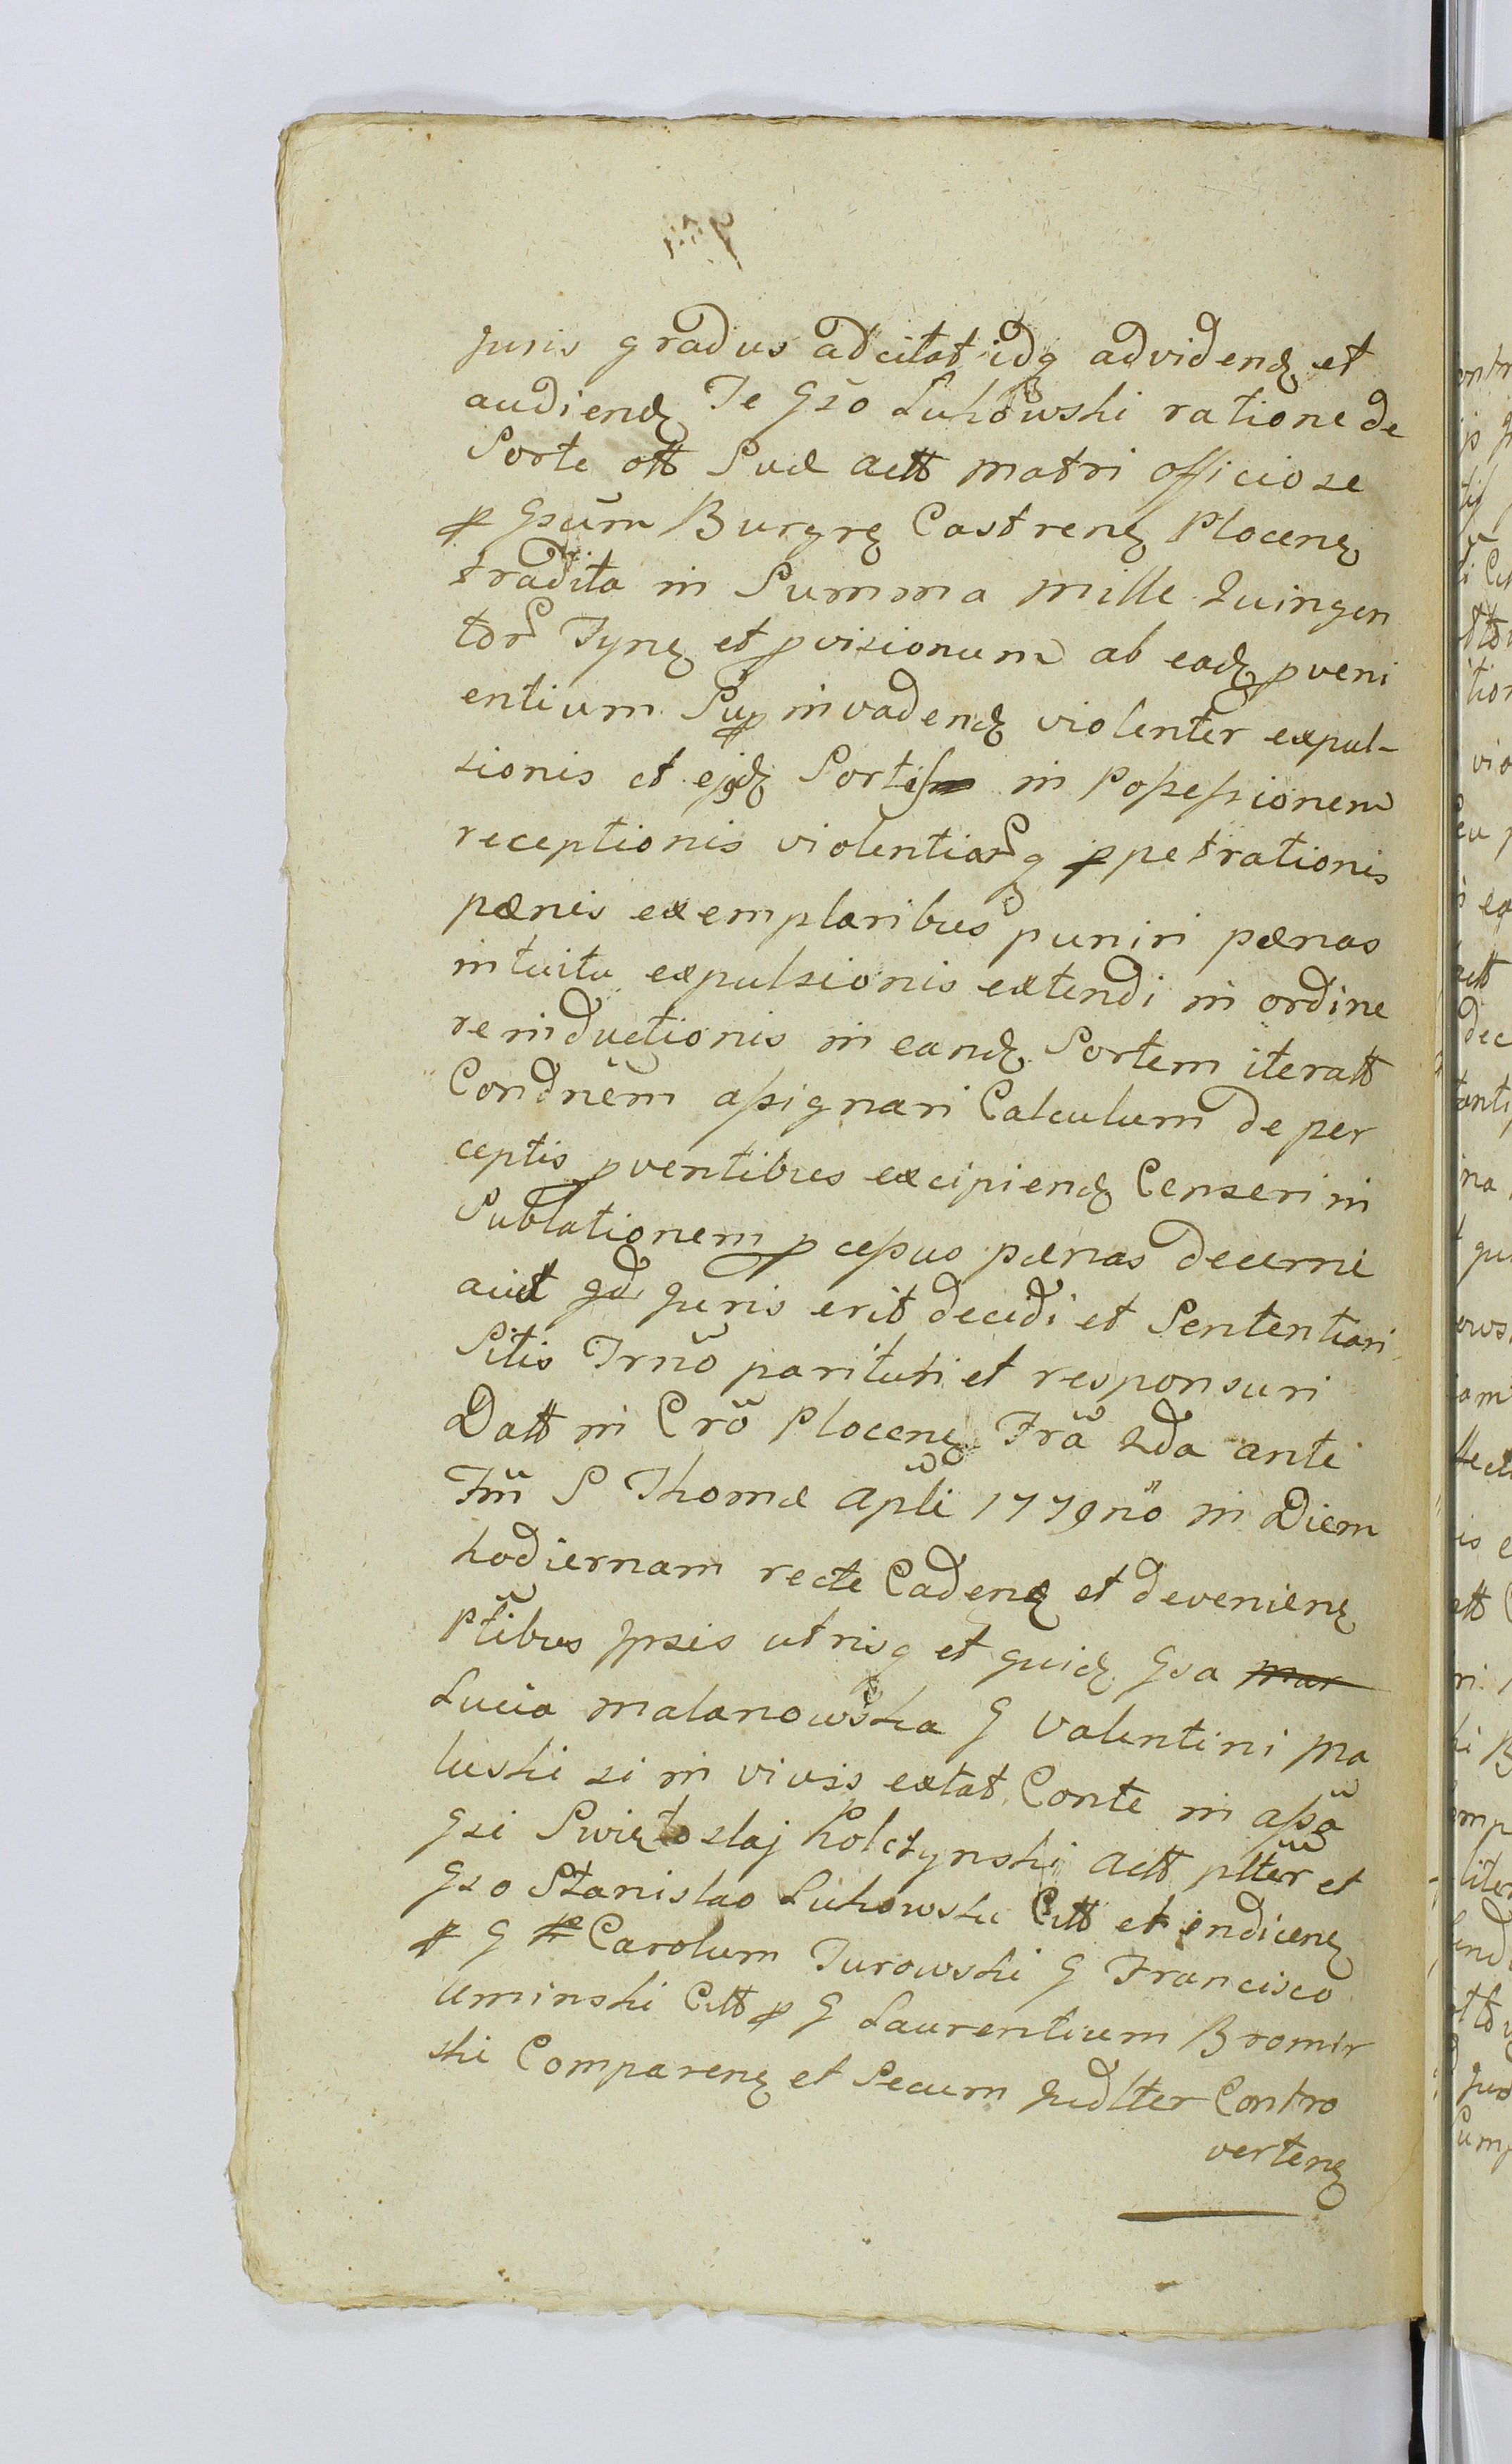 Juris gradus adcitat idq advidenꝝ et
audienꝝ Te Gsõ Lukowski ratione de
Sorte ott Suæ actt matri officiose
ꝑ Gsũm Burgrꝝ Castrenꝝ Plocenꝝ
tradita in Summa mille Quingen
tor Tynꝝ et ꝓvisionum ab eadꝝ ꝓveni
entium Suꝑ invadenꝝ violenter expul-
sionis et ejqdꝝ Sortis in Possessionem
receptionis violentiarq ꝑpetrationis
pænis exemplaribus puniri pænas
intuitu expulsionis extendi in ordine
reinductionis in eandꝝ Sortem iteratt
Condnẽm assignari Calculum de per
ceptis ꝓventibus excipiendꝝ Censeri in
Sublationem ꝓcessus pænas decerni
aut qd Juris erit decidi et Sententiari
Sitis Trnõ parituri et responsuri
Datt in Crõ Plocenꝝ Frã 2da ante
Fm̃ S Thomæ Apli 1779nõ in Diem
hodiernam recte Cadenꝝ et devenienꝝ
Ptibus Ipsis utrisq et quidꝝ Gsa mar
Lucia Malanowska G Valentini Ma
luski si in vivis extat Conte in assã
Gsi Swiętoslaj Kolczynski actt pltter et
Gso Stanislao Lukowski Citt et indicenꝝ
ꝑ G Carolum Turowski G Francisco
Uminski Citt ꝑ G Laurentium Bromir
ski Comparenꝝ et Secum Judlter Contro
vertenꝝ